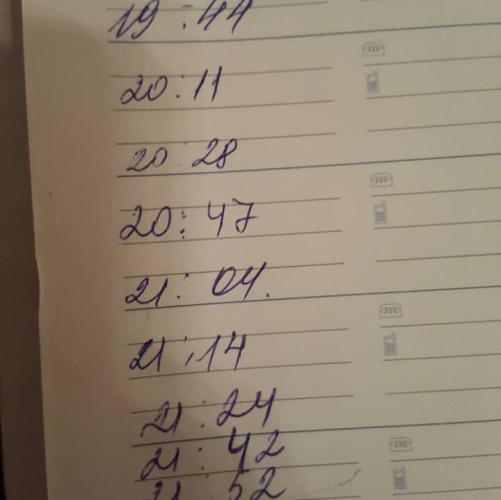 19:44
20:11
20:28
20:47
21:04.
21:14
21:24
21:42
21:52